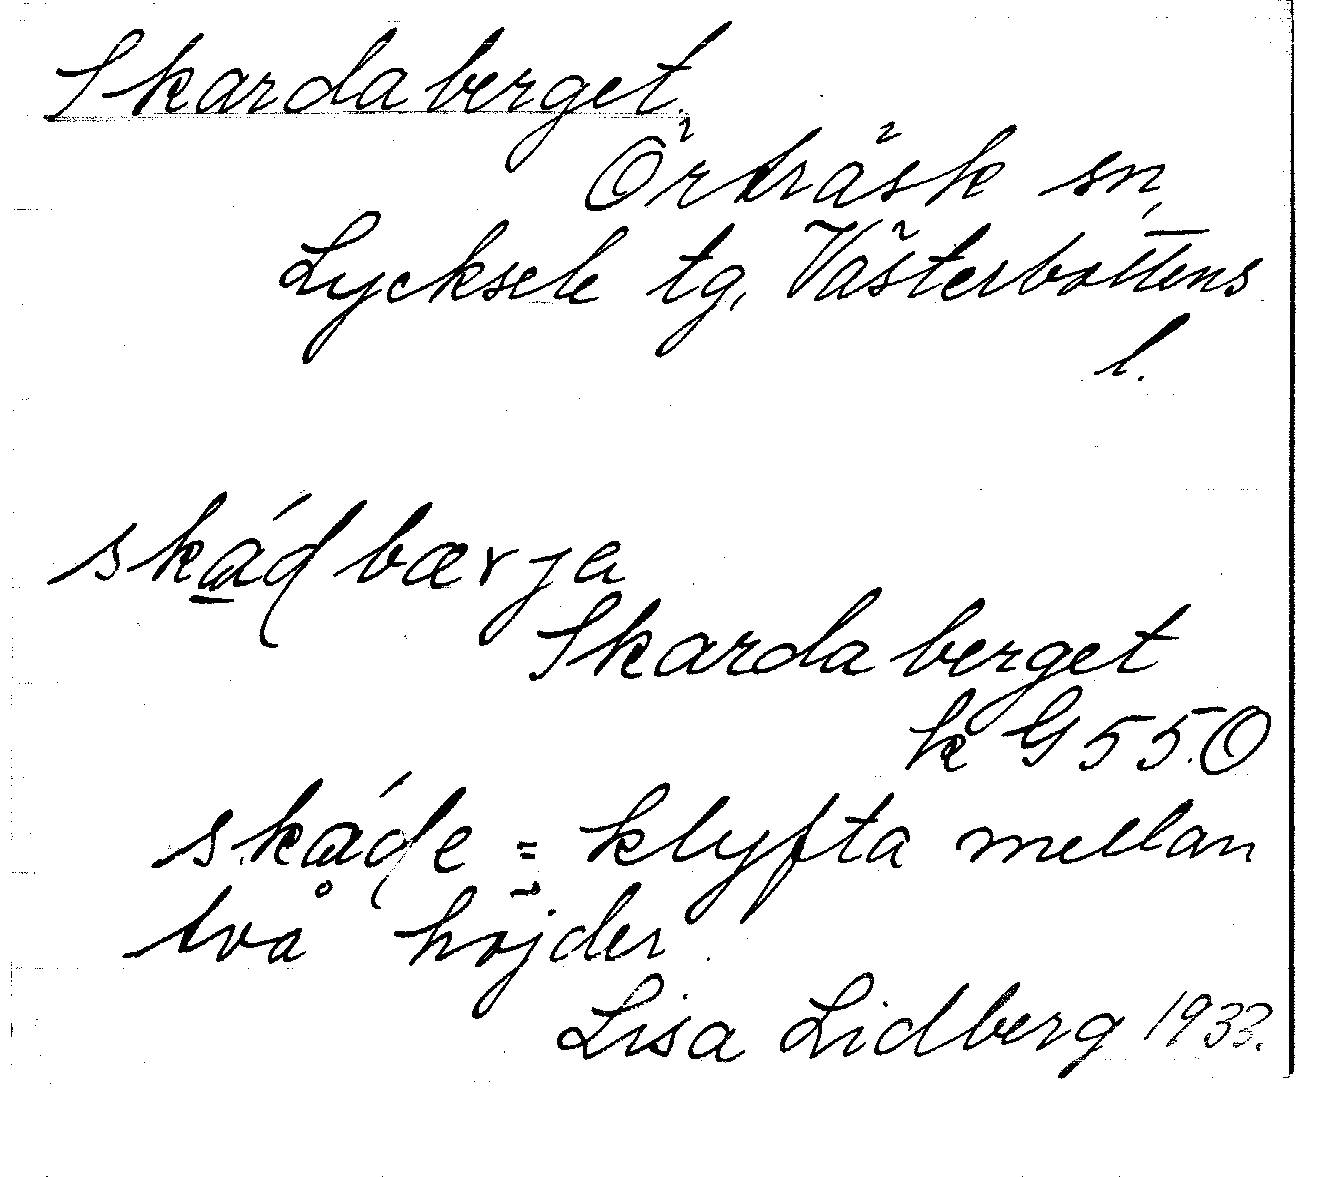 Skardaberget,
Örträsk sn,
Lycksele tg, Västerbottens
l.
skádbærja
Skardaberget
k G 55 O
skáde = klyfta mellan
två höjder.
Lisa Lidberg 1933.